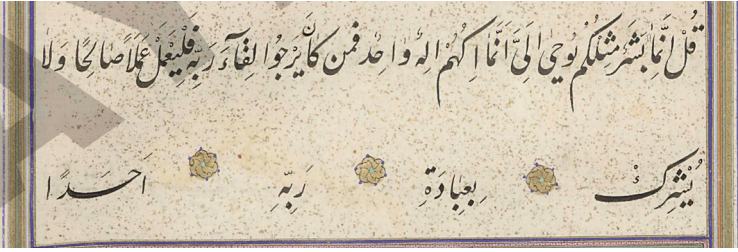 قُلْ اِنَّمَا بَشَرٌ مِثْلُكُمْ يُوحىٰ اِلَىَّ اَنَّمَا اِلٰهُكُمْ اِلهٌ وَاحِدٌ فَمن كَانَ يَرْجُوا لِقَآءَ رَبِّهِ فَلْيَعْمَلْ عَمَلاً صَالِحًا وَلَا
يُشْرِكْ بِعِبَادَةِ رَبِّهِ اَحَدًا